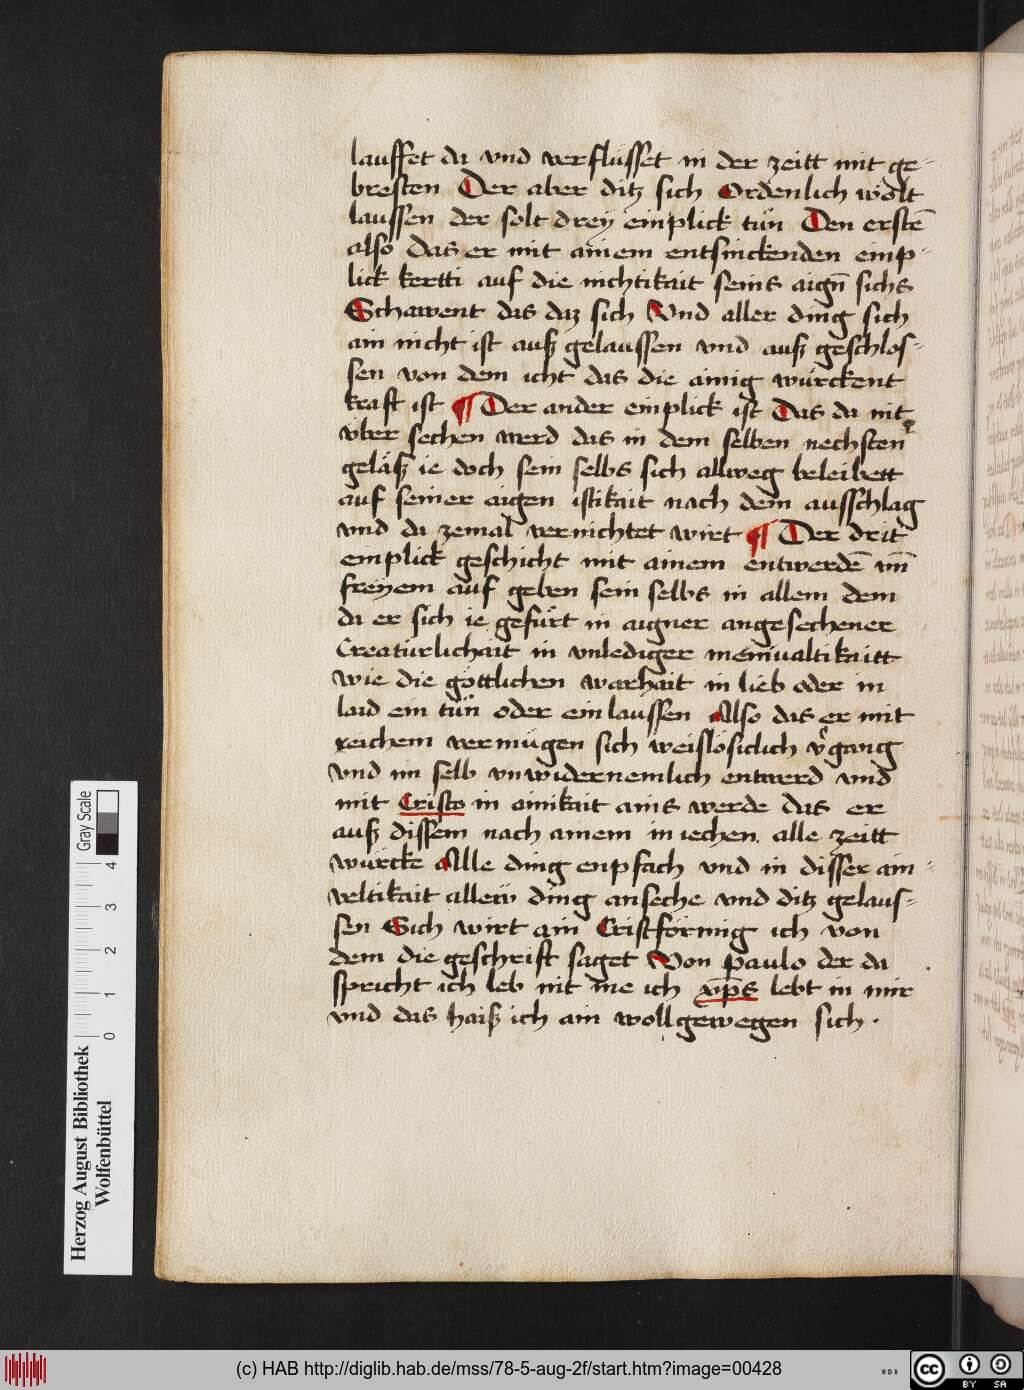 lauffet da vnd verflüsset in der zeitt mit ge-
bresten Der aber ditz sich Ordenlich wölt
laussen der solt drey einplick tün Den erstē
also das er mit ainem entsinckenden einp-
lick kertti auf die nichtikait seins aign̄ sichs
Schawent das daz sich Vnd aller ding sich
ain nicht ist auß gelaussen vnd auß geschlos-
sen von dem icht das die ainig würckent
kraft ist ¶ Der ander einplick ist Das da nit
v̇ber sechen werd das in dem selben nechsten
geläß ie doch sein selbs sich allweg beleibett
auf seiner aigen istikait nach dem ausschlag
vnd da zemal vernichtet wirt ¶ Der drit
einplick geschicht mit ainem entwerdē vn̄
freyem auf geben sein selbs in allem dem
da er sich ie gefürt in aigner angesechener
Creatürlichait in vnlediger menivaltikaitt
wie die göttlichen warhait in lieb oder in
laid ein tün oder ein laussen Also das er mit
reichem vermügen sich weislösiclich v'gang
vnd im selb vnwidernemlich entwerd vnd
mit Cristo in ainikait ains werde das er
auß dissem nach ainem in iechen. alle zeitt
würcke Alle ding enpfach vnd in disser ain-
veltikait allew ding anseche vnd ditz gelaus-
sen Sich wirt ain Cristförmig ich von
dem die geschrift saget Von paulo der da
spricht ich leb nit me ich xp̄s lebt in mir
vnd das haiß ich ain wollgewegen sich ·
Gray Scale
4 3 2 1 0
Herzog August Bibliothek
Wolfenbüttel
(c) HAB http://diglib.hab.de/mss/78-5-aug-2f/start.htm?image=00428
cc BY SA